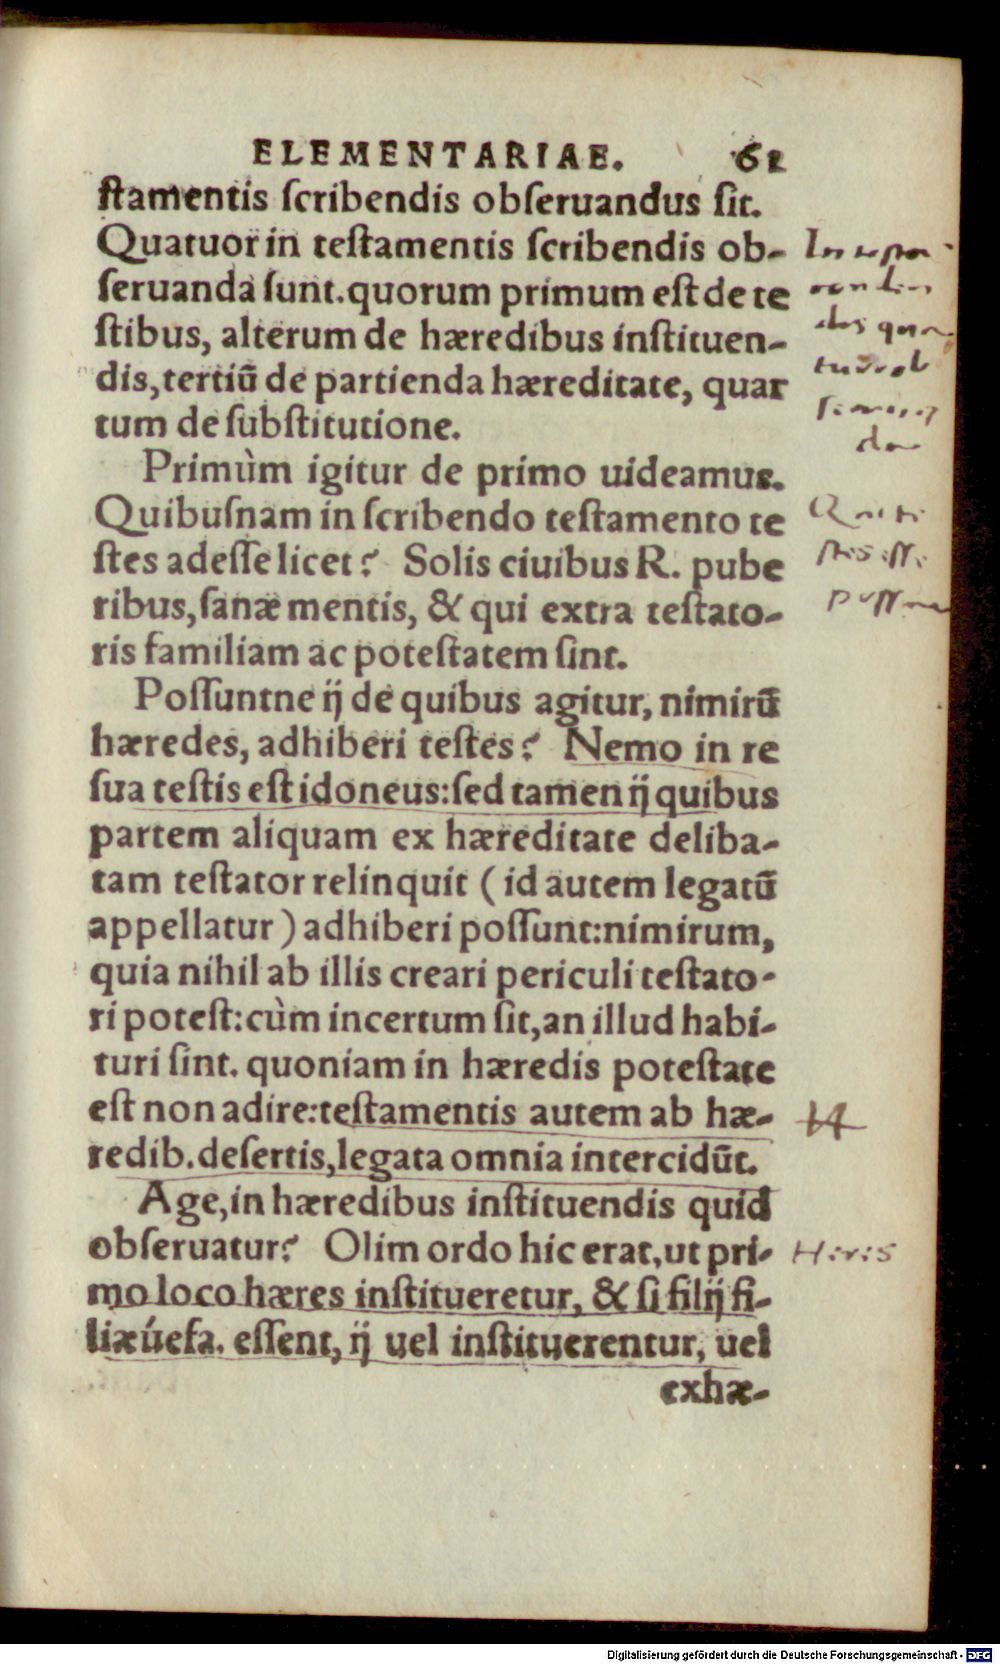 ELEMENTARIAE. 61
ſtamentis ſcribendis obſeruandus ſit.
Quatuor in teſtamentis ſcribendis ob-
ſeruanda ſunt. quorum primum eſt de te
ſtibus, alterum de hæredibus inſtituen-
dis, tertiū de partienda hæreditate, quar
tum de ſubſtitutione.
Primùm igitur de primo uideamus.
Quibuſnam in ſcribendo teſtamento te
ſtes adeſſe licet? Solis ciuibus R. pube
ribus, ſanæ mentis, & qui extra teſtato-
ris familiam ac poteſtatem ſint.
Poſſuntne ij de quibus agitur, nimirū
hæredes, adhiberi teſtes? Nemo in re
ſua teſtis eſt idoneus: ſed tamen ij quibus
partem aliquam ex hæreditate deliba-
tam teſtator relinquit (id autem legatū
appellatur) adhiberi poſſunt: nimirum,
quia nihil ab illis creari periculi teſtato-
ri poteſt: cùm incertum ſit, an illud habi-
turi ſint. quoniam in hæredis poteſtate
eſt non adire: teſtamentis autem ab hæ-
redib. deſertis, legata omnia intercidūt.
Age, in hæredibus inſtituendis quid
obſeruatur? Olim ordo hic erat, ut pri-
mo loco hæres inſtitueretur, & ſi filij fi-
liæúefa. eſſent, ij uel inſtituerentur, uel
exhæ-
Digitalisierung gefördert durch die Deutsche Forschungsgemeinschaft - DFG